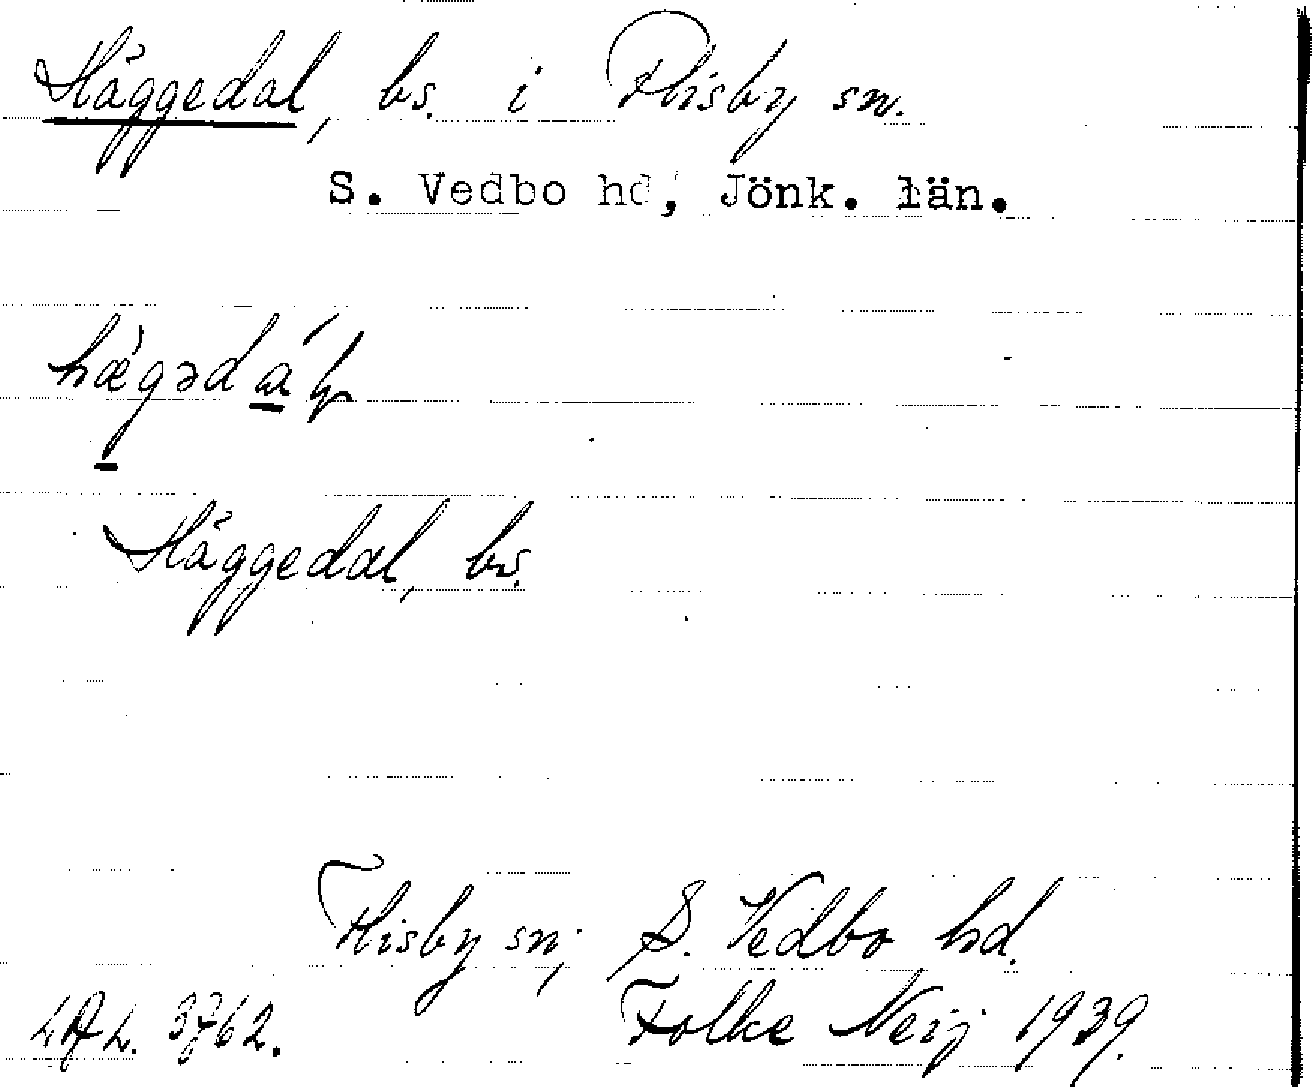 Häggedal, bs. i Flisby sn.
S. Vedbo hd, Jönk. län.
hǽgədáɫ
Häggedal, bs.
Flisby sn; S. Vedbo hd.
3762. Folke Neij 1939.